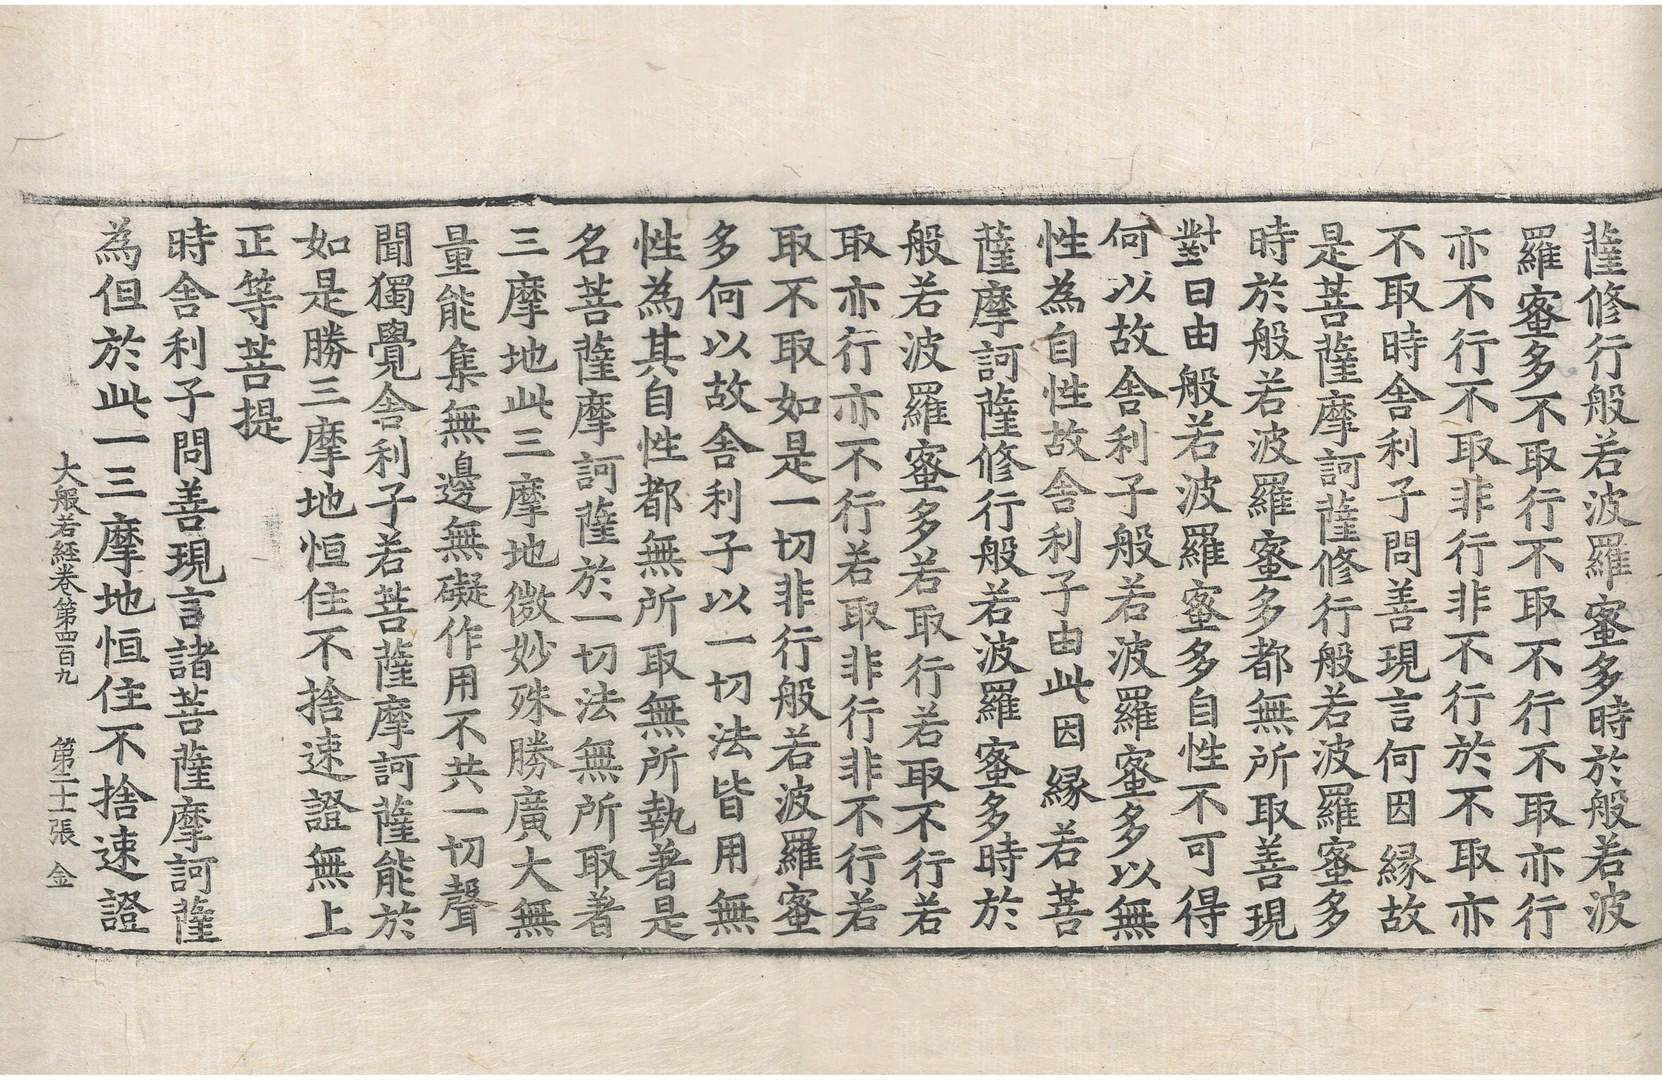 薩修行般若波羅蜜多時於般若波
羅蜜多不取行不取不行不取亦行
亦不行不取非行非不行於不取亦
不取時舍利子問善現言何因縁故
是菩薩摩訶薩修行般若波羅蜜多
時於般若波羅蜜多都無所取善現
對曰由般若波羅蜜多自性不可得
何以故舍利子般若波羅蜜多以無
性為自性故舍利子由此因縁若菩
薩摩訶薩修行般若波羅蜜多時於
般若波羅蜜多若取行若取不行若
取亦行亦不行若取非行非不行若
取不取如是一切非行般若波羅蜜
多何以故舍利子以一切法皆用無
性為其自性都無所取無所執著是
名菩薩摩訶薩於一切法無所取著
三摩地此三摩地微妙殊勝廣大無
量能集無邊無礙作用不共一切聲
聞獨覺舍利子若菩薩摩訶薩能於
如是勝三摩地恒住不捨速證無上
正等菩提
時舍利子問善現言諸菩薩摩訶薩
為但於此一三摩地恒住不捨速證
大般若経巻第四百九 第二十張 金